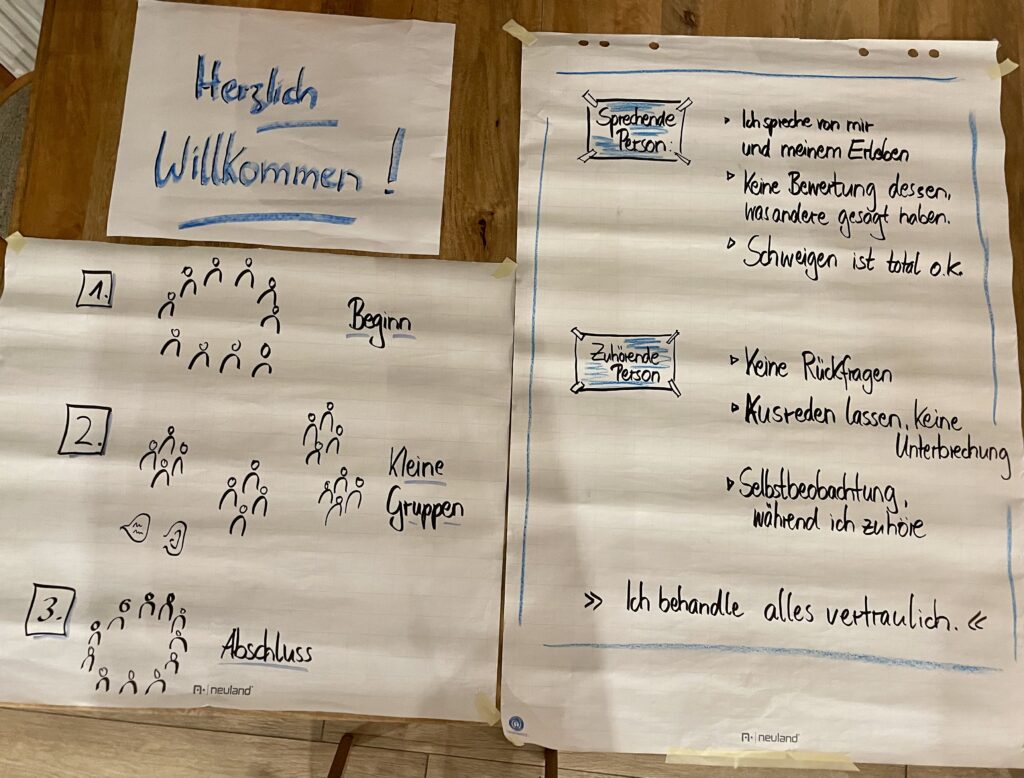 Herzlich
Willkommen!
1.
Beginn
2.
Kleine
Gruppen
3.
Abschluss
neuland
Sprechende
Person:
▹ Ich spreche von mir
und meinem Erleben
▹ Keine Bewertung dessen,
was andere gesagt haben.
▹ Schweigen ist total o.k.
Zuhörende
Person
▹ Keine Rückfragen
▹ Ausreden lassen, keine
Unterbrechung
▹ Selbstbeobachtung,
während ich zuhöre
» Ich behandle alles vertraulich. «
neuland